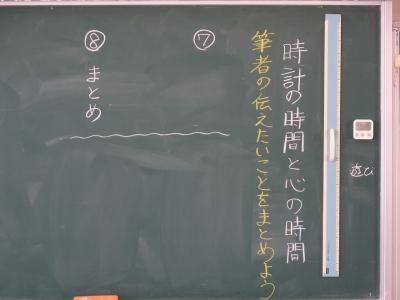 遊び
時計の時間と心の時間
筆者の伝えたいことをまとめよう
⑦
⑧ まとめ